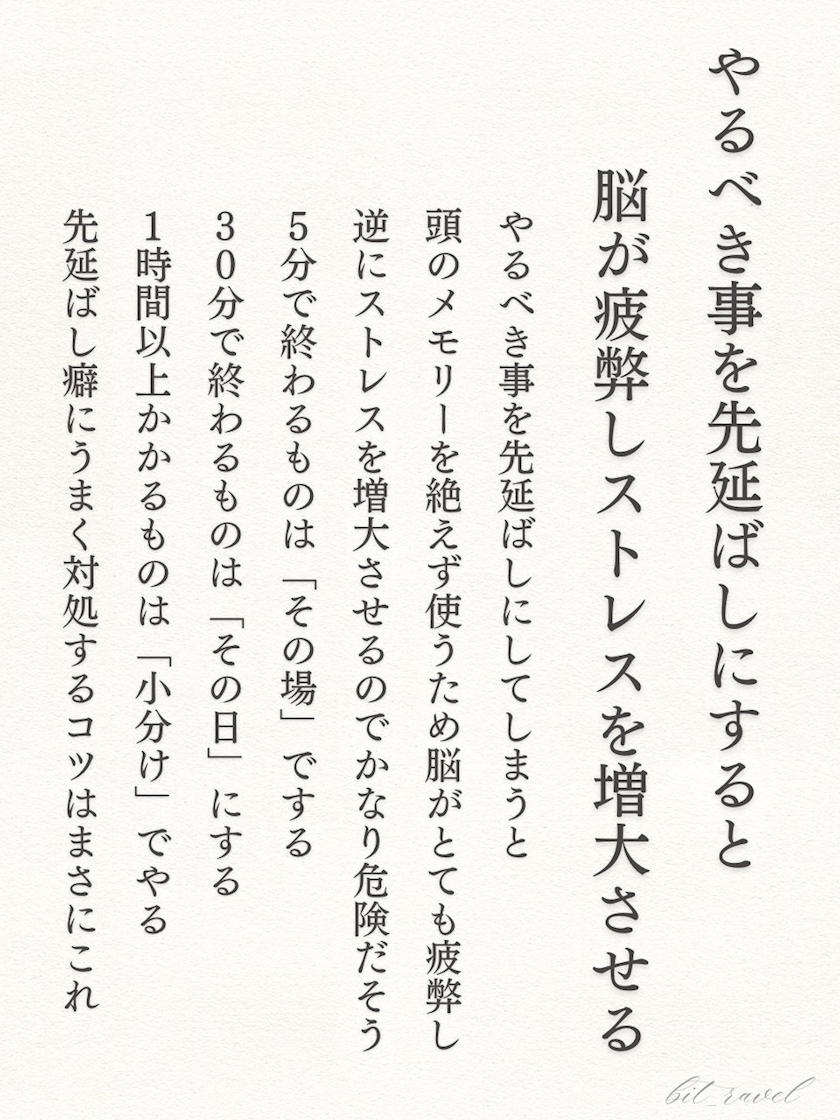 やるべき事を先延ばしにすると
脳が疲弊しストレスを増大させる
やるべき事を先延ばしにしてしまうと
頭のメモリーを絶えず使うため脳がとても疲弊し
逆にストレスを増大させるのでかなり危険だそう
5分で終わるものは「その場」でする
30分で終わるものは「その日」にする
1時間以上かかるものは「小分け」でやる
先延ばし癖にうまく対処するコツはまさにこれ
bit_ravel